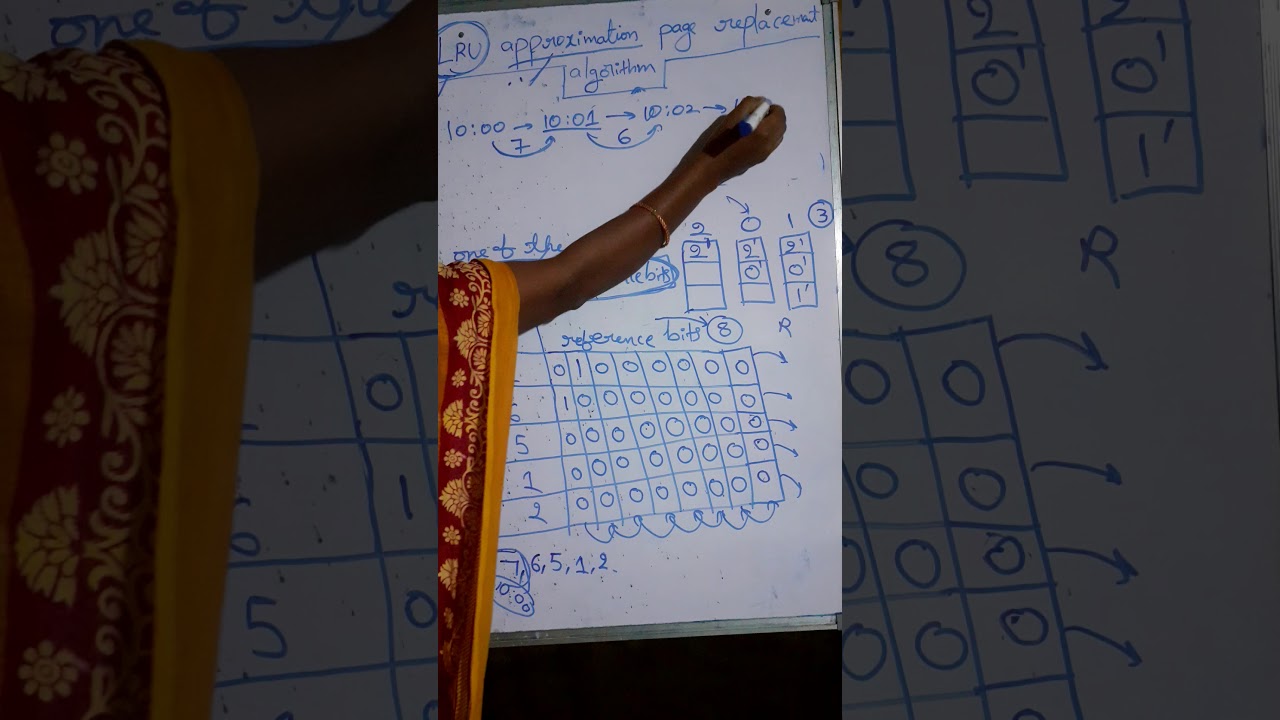 LRU approximation page replacement
algorithm
10:00 → 10:01 → 10:02 →
7 6
2 0 1 ③
2 2 2
0 0
1
one of the
bits
reference bits ⑧ R
0 1 0 0 0 0 0 0
6 1 0 0 0 0 0 0 0
5 0 0 0 0 0 0 0 0
1 0 0 0 0 0 0 0 0
2 0 0 0 0 0 0 0 0
7, 6, 5, 1, 2.
10:00